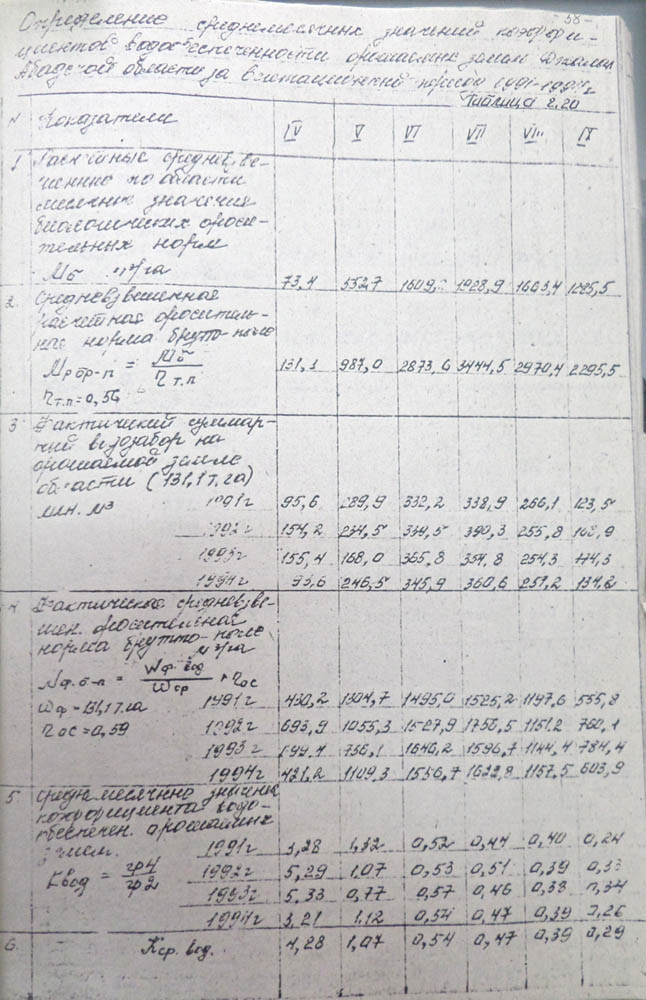 - 58 -
Определение среднемесячных значений коэффи-
циентов водообеспеченности орошаемых земель Джалал
Абадской области за вегетационный период 1991-1994г.
Таблица 2.20
N Показатели IV V VI VII VIII IX
1 Расчетные средневзве-
шенные по области
месячные значения
биологических ороси-
тельных норм
Мб м³/га 73,4 552,7 1609, 1928,9 1663,4 1285,5
2. Средневзвешенная
расчетная ороситель-
ная норма брутто-поле
Мр бр-п = Мб / ηт.п 131,1 987,0 2873,6 3444,5 2970,4 2295,5
ηт.п=0,56
3 Фактический суммар-
ный водозабор на
орошаемой земле
области (131,1 т.га)
млн. м³ 1991г 95,6 289,9 332,2 338,9 266,1 123,5
1992г 154,2 234,5 339,5 390,3 255,8 168,9
1993г 155,4 168,0 365,8 354,8 254,3 174,3
1994г 93,6 246,5 345,9 360,6 257,2 134,2
4 Фактическая средневзве-
шен. оросительная
норма брутто-поле
м³/га
Мф.б-п = Wф.вод / Wор · ηос
1991г 430,2 1304,7 1495,0 1525,2 1197,6 555,8
Wф=131,1 т.га
ηос=0,59 1992г 693,9 1055,3 1527,9 1756,5 1151,2 760,1
1993г 699,4 756,1 1646,2 1596,7 1144,4 784,4
1994г 421,2 1109,3 1556,7 1622,8 1157,5 603,9
5 Среднемесячные значения
коэффициента водо-
обеспечен. орошаемых
земел. 1991г 3,28 1,32 0,52 0,44 0,40 0,24
Квод = гр4 / гр2 1992г 5,29 1,07 0,53 0,51 0,39 0,33
1993г 5,33 0,77 0,57 0,46 0,38 0,34
1994г 3,21 1,12 0,54 0,47 0,39 0,26
6. Кср. вод. 4,28 1,07 0,54 0,47 0,39 0,29